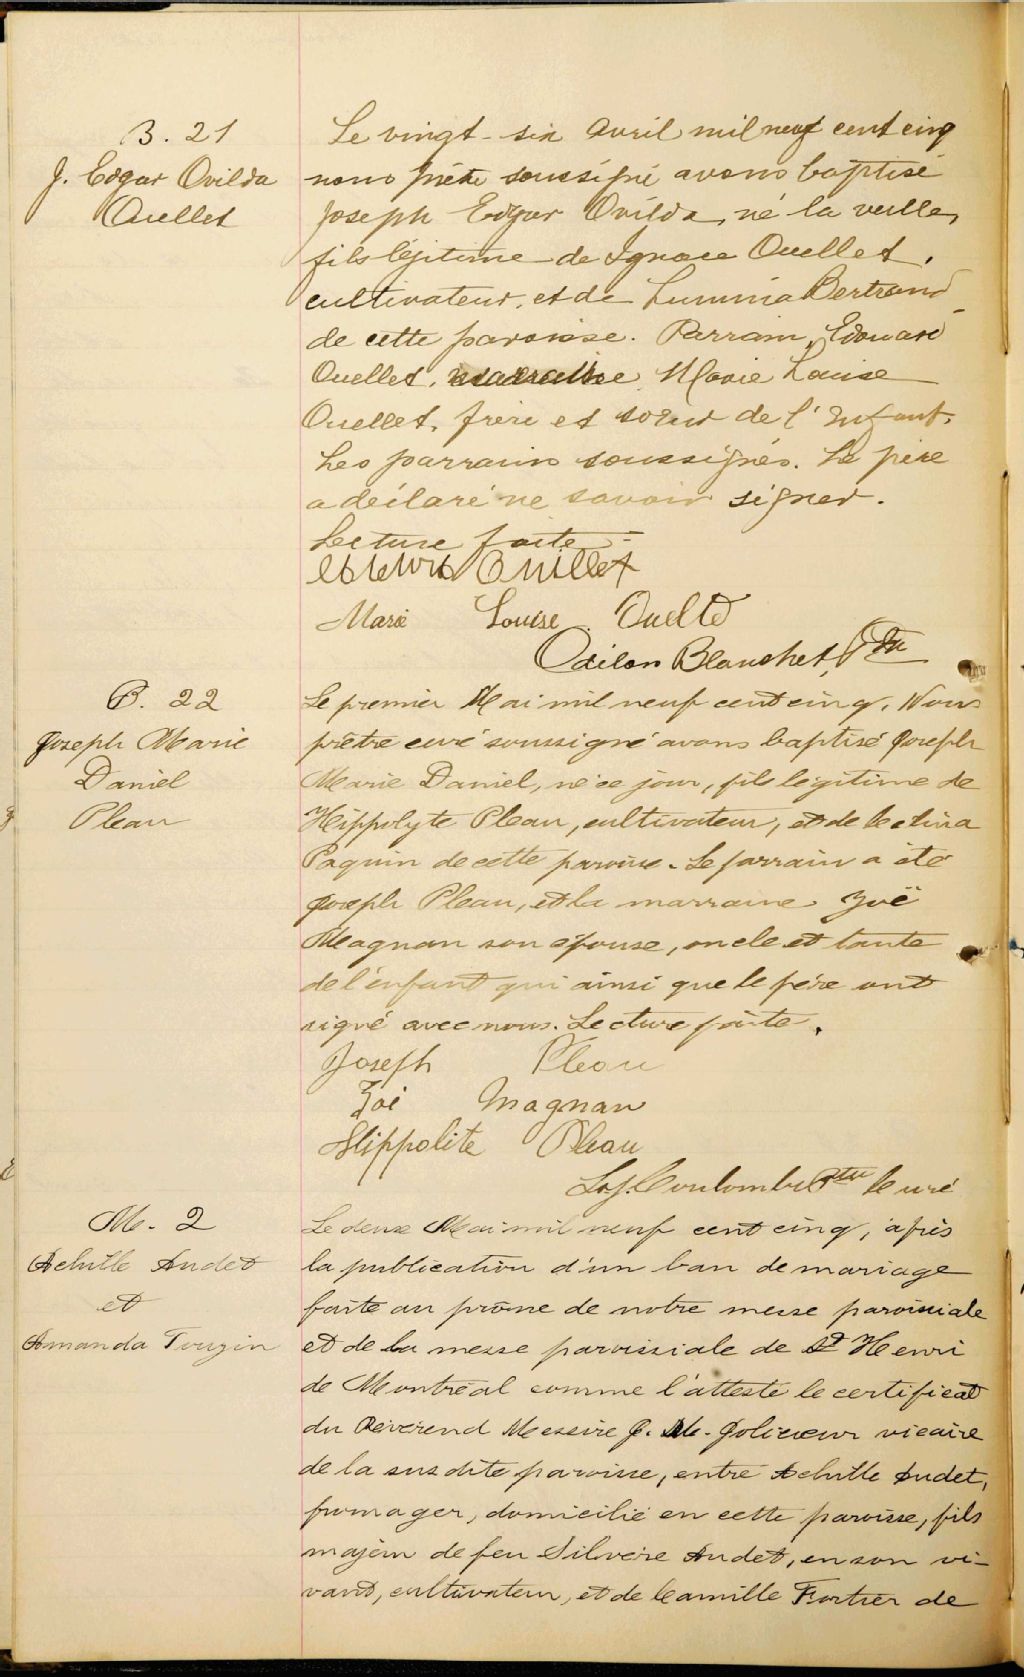 B. 21
J. Edgar Ovilda
Ouellet
Le vingt-six avril mil neuf cent cinq
nous prêtre soussigné avons baptisé
Joseph Edgar Ovilda, né la veille,
fils légitime de Ignace Ouellet,
cultivateur, et de Lumina Bertrand
de cette paroisse. Parrain, Edouard
Ouellet, marraine Marie Louise
Ouellet, frère et soeur de l'enfant.
Les parrain soussignés. Le père
a déclaré ne savoir signer.
Lecture faite
Ouillet
Marie Louise Ouellet
Odilon Blanchet, Ptre
B. 22
Joseph Marie
Daniel
Pleau
Le premier Mai mil neuf cent cinq, Nous
prêtre curé soussigné avons baptisé Joseph
Marie Daniel, né ce jour, fils légitime de
Hippolyte Pleau, cultivateur, et de
Paquin de cette paroisse. Le parrain a été
Joseph Pleau, et la marraine Zoé
Magnan son épouse, oncle et tante
de l'enfant qui ainsi que le père ont
signé avec nous. Lecture faite.
Joseph Pleau
Zoé Magnan
Hippolite Pleau
Coulombe Ptre Curé
M. 2
Achille Audet
et
Amanda Tougin
Le deux Mai mil neuf cent cinq, après
la publication d'un ban de mariage
faite au prône de notre messe paroissiale
et de la messe paroissiale de St Henri
de Montréal comme l'atteste le certificat
du Révérend Messire J. M. Jolicoeur vicaire
de la susdite paroisse, entre Achille Audet,
fromager, domicilié en cette paroisse, fils
majeur de feu Silvère Audet, en son vi-
vant, cultivateur, et de Camille Fortier de